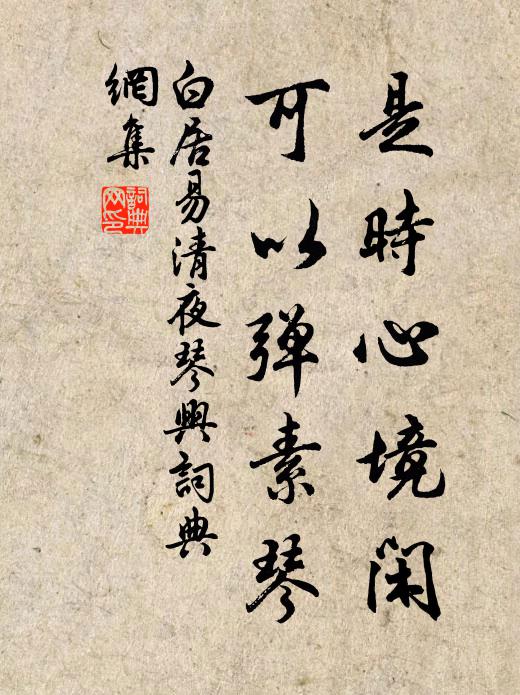 是時心境閑
可以弹素琴
白居易清夜琴興詞典
網集
詞典
网印